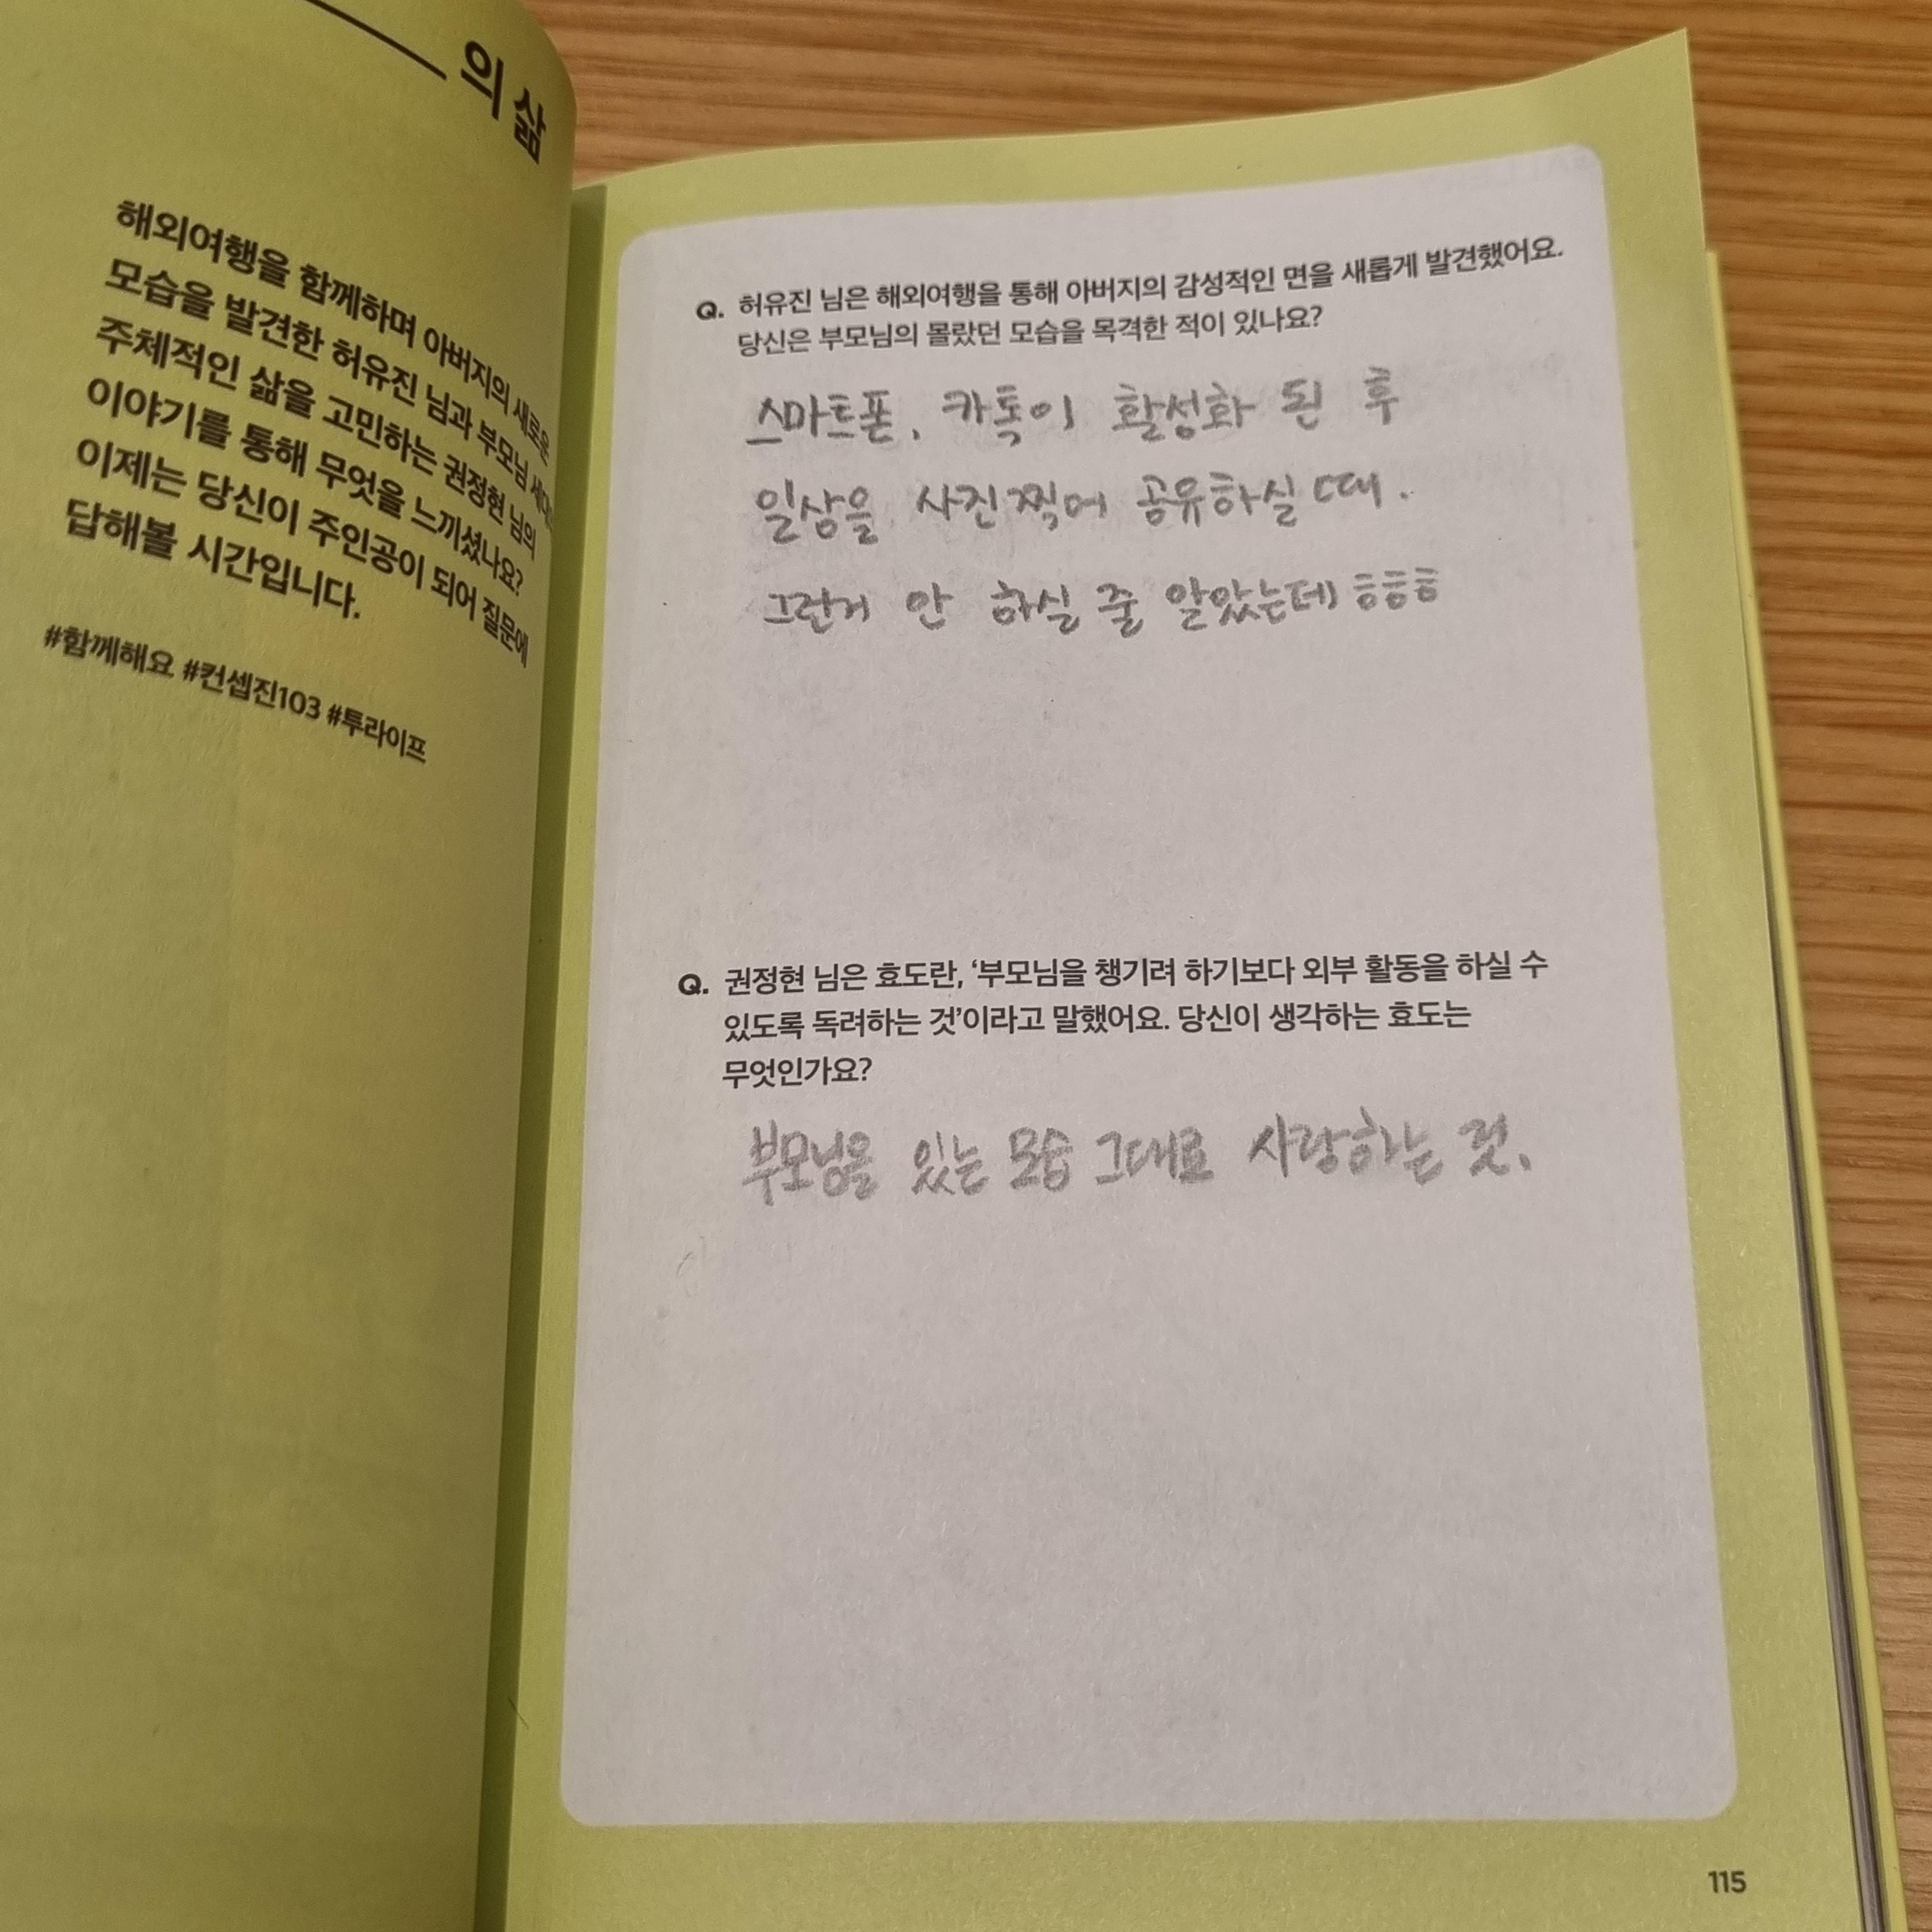 의 삶
해외여행을 함께하며 아버지의 새로운
모습을 발견한 허유진 님과 부모님 세대의
주체적인 삶을 고민하는 권정현 님의
이야기를 통해 무엇을 느끼셨나요?
이제는 당신이 주인공이 되어 질문에
답해볼 시간입니다.
#함께해요 #컨셉진103 #투라이프
Q. 허유진 님은 해외여행을 통해 아버지의 감성적인 면을 새롭게 발견했어요.
당신은 부모님의 몰랐던 모습을 목격한 적이 있나요?
스마트폰, 카톡이 활성화 된 후
일상을 사진찍어 공유하실 때.
그런거 안 하실 줄 알았는데 ㅎㅎㅎ
Q. 권정현 님은 효도란, ‘부모님을 챙기려 하기보다 외부 활동을 하실 수
있도록 독려하는 것’이라고 말했어요. 당신이 생각하는 효도는
무엇인가요?
부모님을 있는 모습 그대로 사랑하는 것.
115